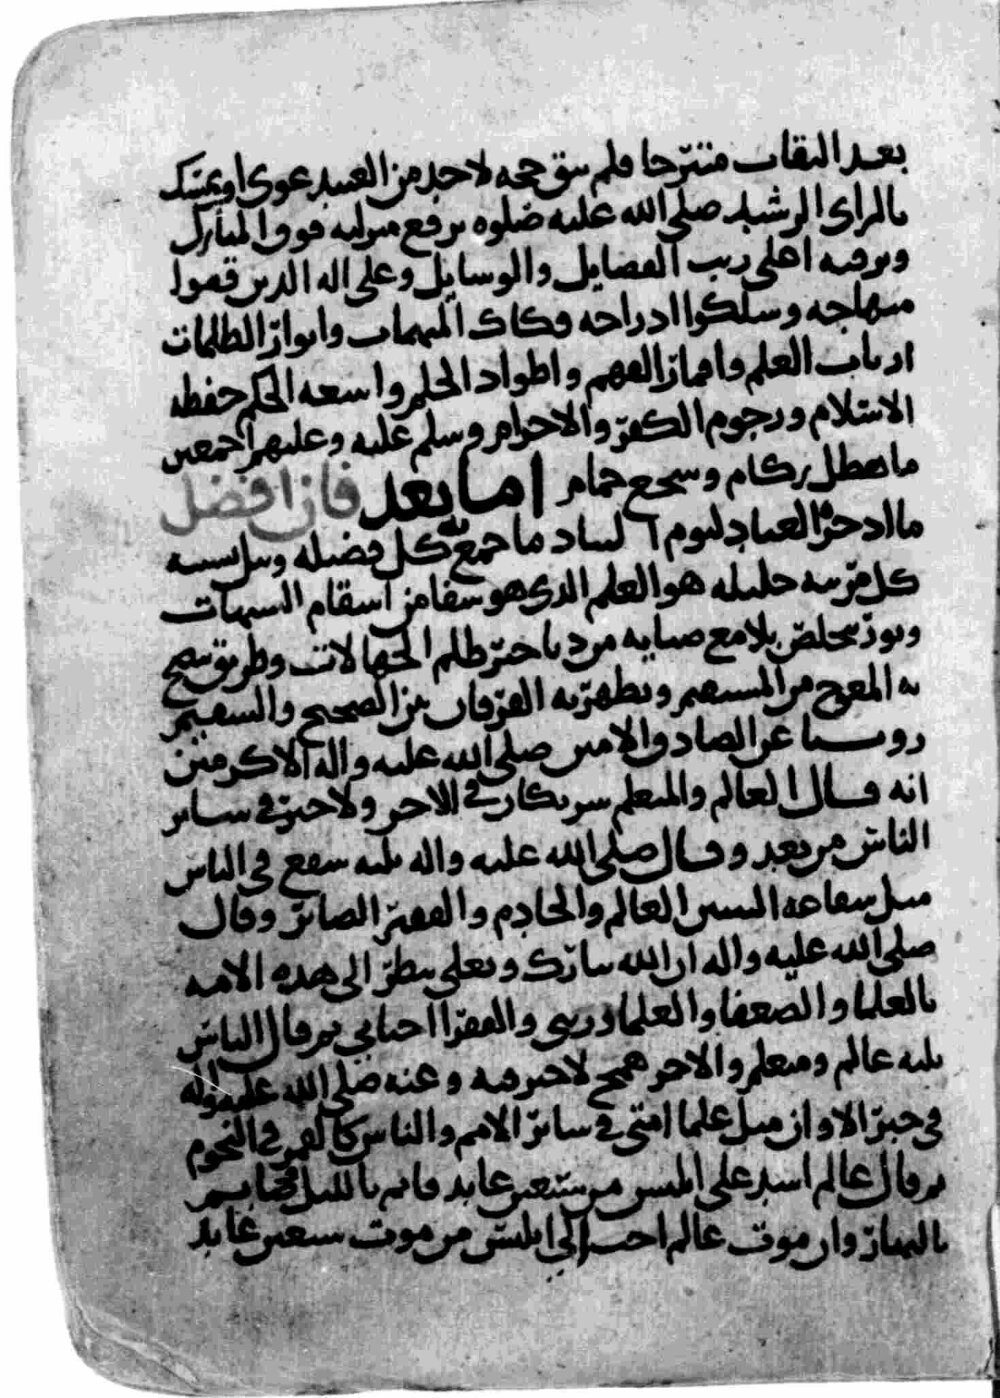 بعد النقاب متترحا فلم تبق حجه لاحد من العبيد عوى او يمسك
بالراى الرشيد صلى الله عليه صلوه ترفع منزلته فوق المبارك
وترقيه اعلى رتب الفضايل والوسايل وعلى اله الدين قصوا
منهاجه وسلكوا ادراجه فكاك المبهمات وانوار الظلمات
ارباب العلم واقمار الفهم واطواد الحلم واسعه الحكم حفظه
الاسلام ورجوم الكفر والاجرام وسلم عليه وعليهم اجمعين
ما هطل ركام وسجع حمام اما بعد فان افضل
ما ادخر العباد ليوم التناد ما جمع كل فضيله ونيل بسببه
كل مرتبه جليله هو العلم الذى هو شفا من اسقام الشبهات
ونور يخلص بلامع ضيايه من دياجر ظلم الجهالات وطريق يتضح
به المعوج من المستقيم ويظهر به الفرقان بين الصحيح والسقيم
روينا عن الصادق الامين صلى الله عليه واله الاكرمين
انه قال العالم والمتعلم شريكان في الاجر ولا خير في ساير
الناس من بعد وقال صلى الله عليه واله ثلثه تشفع في الناس
مثل شفاعه النبيين العالم والخادم والفقير الصابر وقال
صلى الله عليه واله ان الله تبارك وتعلى ينظر الى هذه الامه
بالعلما والضعفا والعلما ورثتى والفقرا احبابي ثم قال الناس
ثلثه عالم ومتعلم والاخر همج لا خير فيه وعنه صلى الله عليه واله
في خبر الا وان مثل علما امتى في ساير الامم والناس كالقمر في النجوم
ثم قال عالم اشد على ابليس من سبعين عابد قايم بالليل صايم
بالنهار وان موت عالم احب الي ابليس من موت سبعين عابد